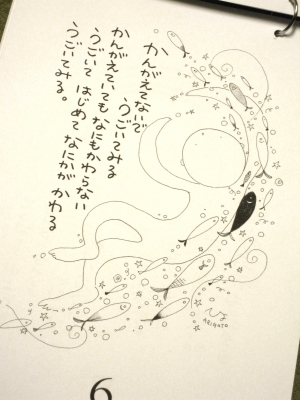 かんがえてないで
うごいてみる
かんがえていても なにもかわらない
うごいて はじめて なにかが かわる
うごいてみる。
6